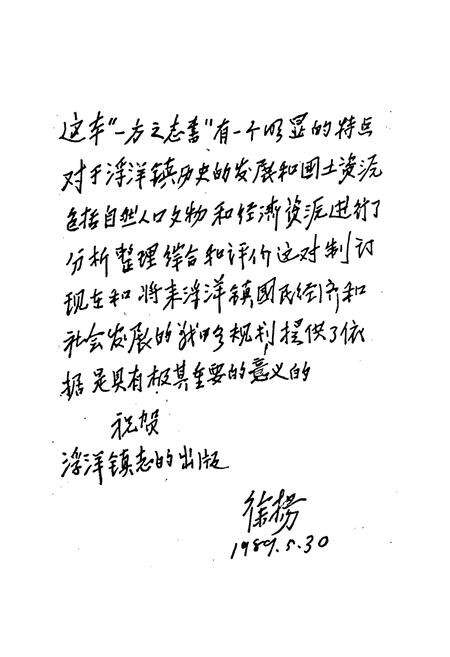 这本“一方之志书”有一个明显的特点
对于浮洋镇历史的发展和国土资源
包括自然人口文物和经济资源进行了
分析整理综合和评价这对制订
现在和将来浮洋镇国民经济和
社会发展的战略规划提供了依
据是具有极其重要的意义的
祝贺
浮洋镇志的出版
徐扬
1989.5.30